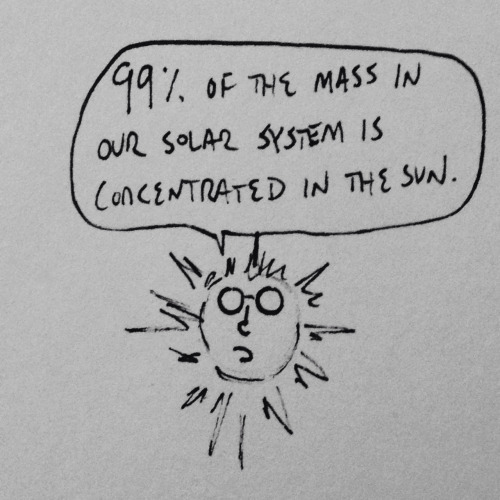 99% OF THE MASS IN
OUR SOLAR SYSTEM IS
CONCENTRATED IN THE SUN.